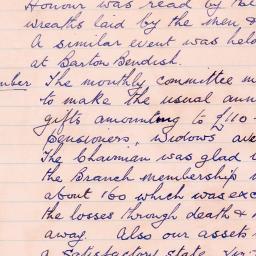 Honour was read by the
wreaths laid by the men &
A similar event was held
at Barton Bendish.
mber The monthly committee m
to make the usual annu
gifts amounting to £110
pensioners, widows
The Chairman was glad
the Branch membership
about 160 which was exc
the losses through death &
away. Also our assets
a satisfactory state